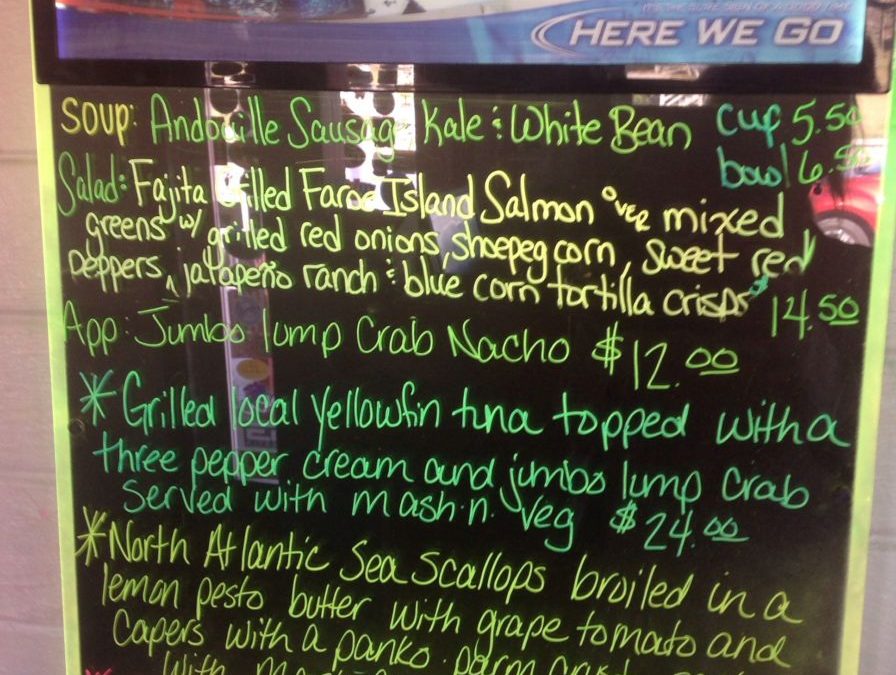 IT'S THE SURE SIGN OF A GOOD TIME
HERE WE GO
SOUP: Andouille Sausage Kale & White Bean cup 5.50
bowl 6.50
Salad: Fajita Grilled Faroe Island Salmon over mixed
greens w/ grilled red onions, shoepeg corn, sweet red
peppers, jalapeño ranch & blue corn tortilla crisps
14.50
App: Jumbo lump Crab Nacho $12.00
* Grilled local yellowfin tuna topped with a
three pepper cream and jumbo lump crab
served with mash n veg $24.00
* North Atlantic Sea scallops broiled in a
lemon pesto butter with grape tomato and
capers with a panko parm
with